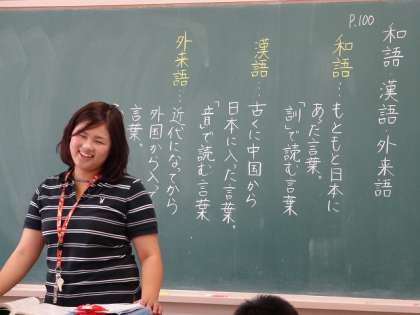 P.100
和語・漢語・外来語
和語…もともと日本に
あった言葉。
「訓」で読む言葉
漢語…古くに中国から
日本に入った言葉。
「音」で読む言葉
外来語…近代になってから
外国から入っ
言葉。